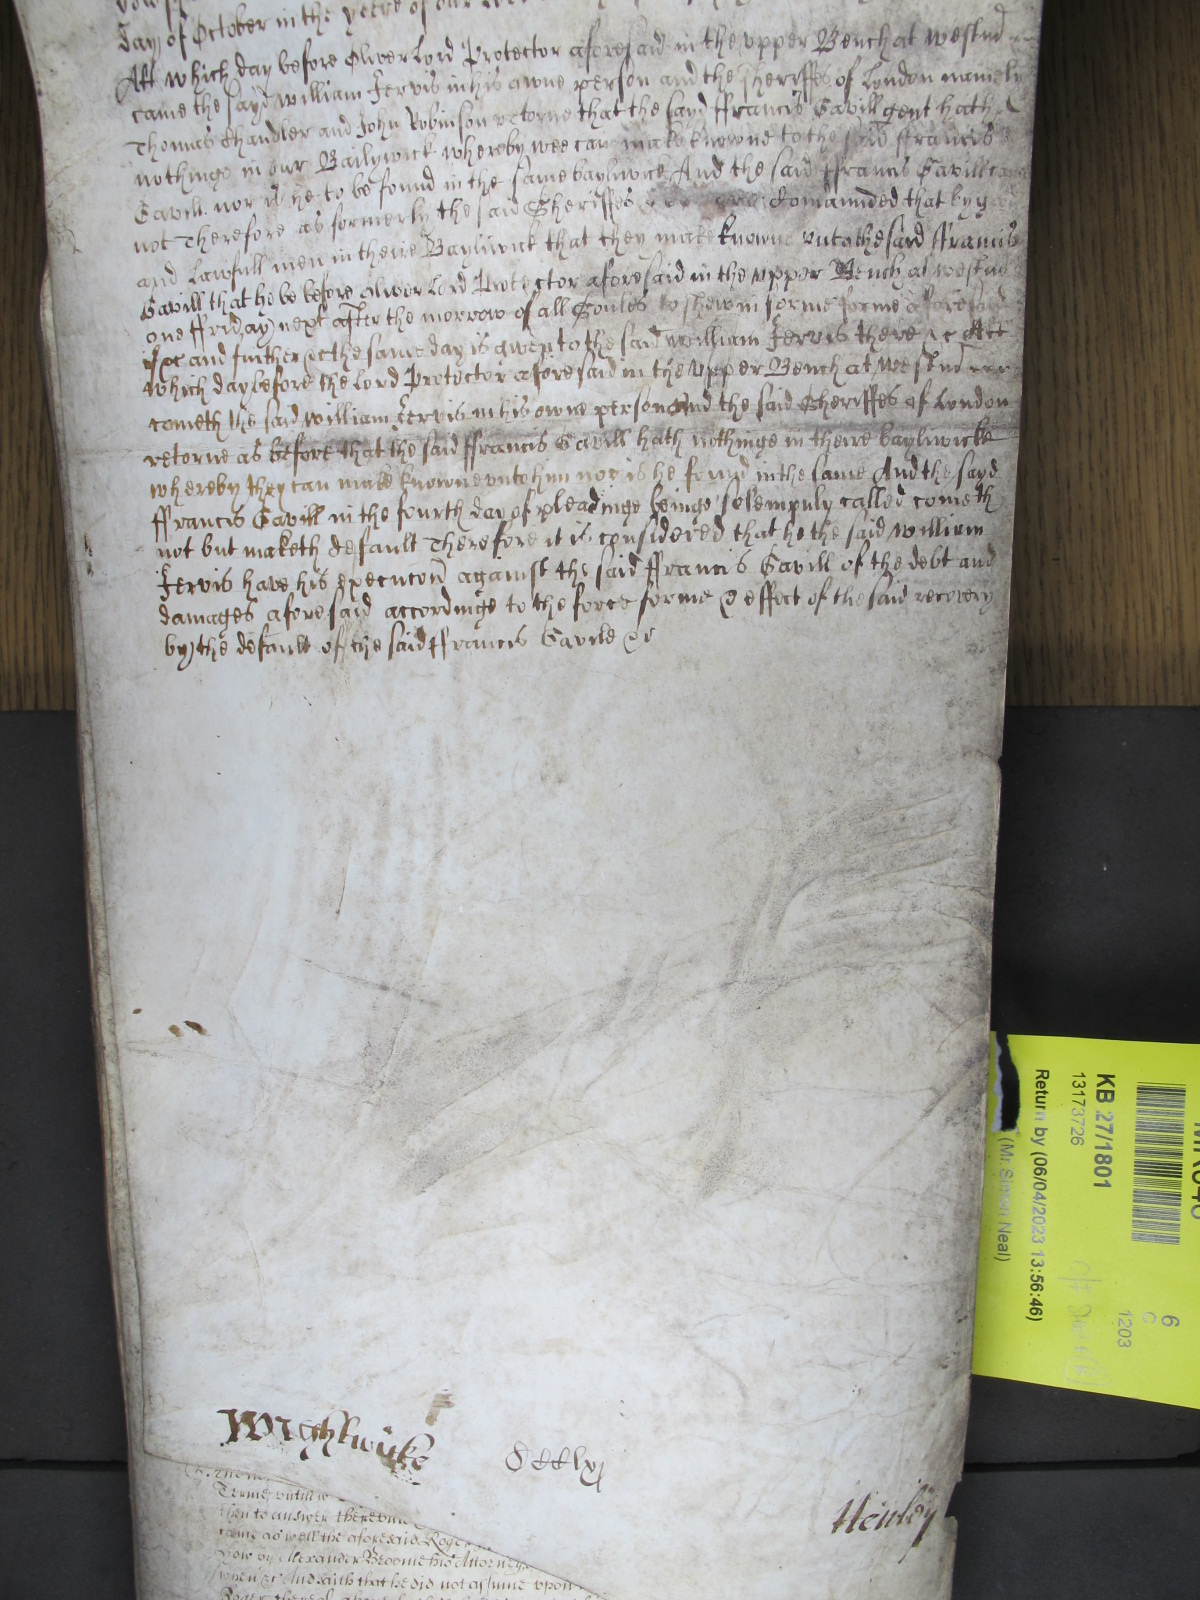 day of October in the yeere of our
Att which day before Oliver Lord Protector aforesaid in the upper Bench at Westmr
came the sayd William Jervis in his owne person and the sheriffes of London namely
Thomas Chandler and John Robinson retorne that the sayd ffrancis Cavill gent hath
nothinge in our Bailywick whereby wee can make knowne to the said ffrancis
Cavill nor is he to be found in the same baylwick And the said ffrancis Cavill came
not Therefore as formerly the said Sheriffes are Comaunded that by good
and Lawfull men in theire Bayliwick that they make knowne unto the said ffrancis
Cavill that he be before Oliver Lord Protector aforesaid in the upper Bench at Westmr
one ffriday next after the morrow of all Soules to shew in forme forme aforesaid
if &c and further &c the same day is given to the said William Jervis there &c Att
which day before the Lord Protector aforesaid in the upper Bench at Westmr
cometh the said William Jervis in his owne person And the said Sheriffes of London
retorne as before that the said ffrancis Cavill hath nothinge in theire bayliwicke
whereby they can make knowne unto him nor is he found in the same And the sayd
ffrancis Cavill in the fourth day of pleadinge beinge solempnly called cometh
not but maketh default Therefore it is considered that he the said William
Jervis have his execucon against the said ffrancis Cavill of the debt and
damages aforesaid accordinge to the force forme & effect of the said recovery
by the default of the said ffrancis Cavile &c
Wightwicke
Henley
Terme untill
then to answer thereunto
came as well the aforesaid Roger
now by Alexander Broome his Attorney
when &c And saith that he did not assume upon
Roger thereof
KB 27/1801
13173726
Return by (06/04/2023 13:56:46)
(Mr Simon Neal)
6
C
1203